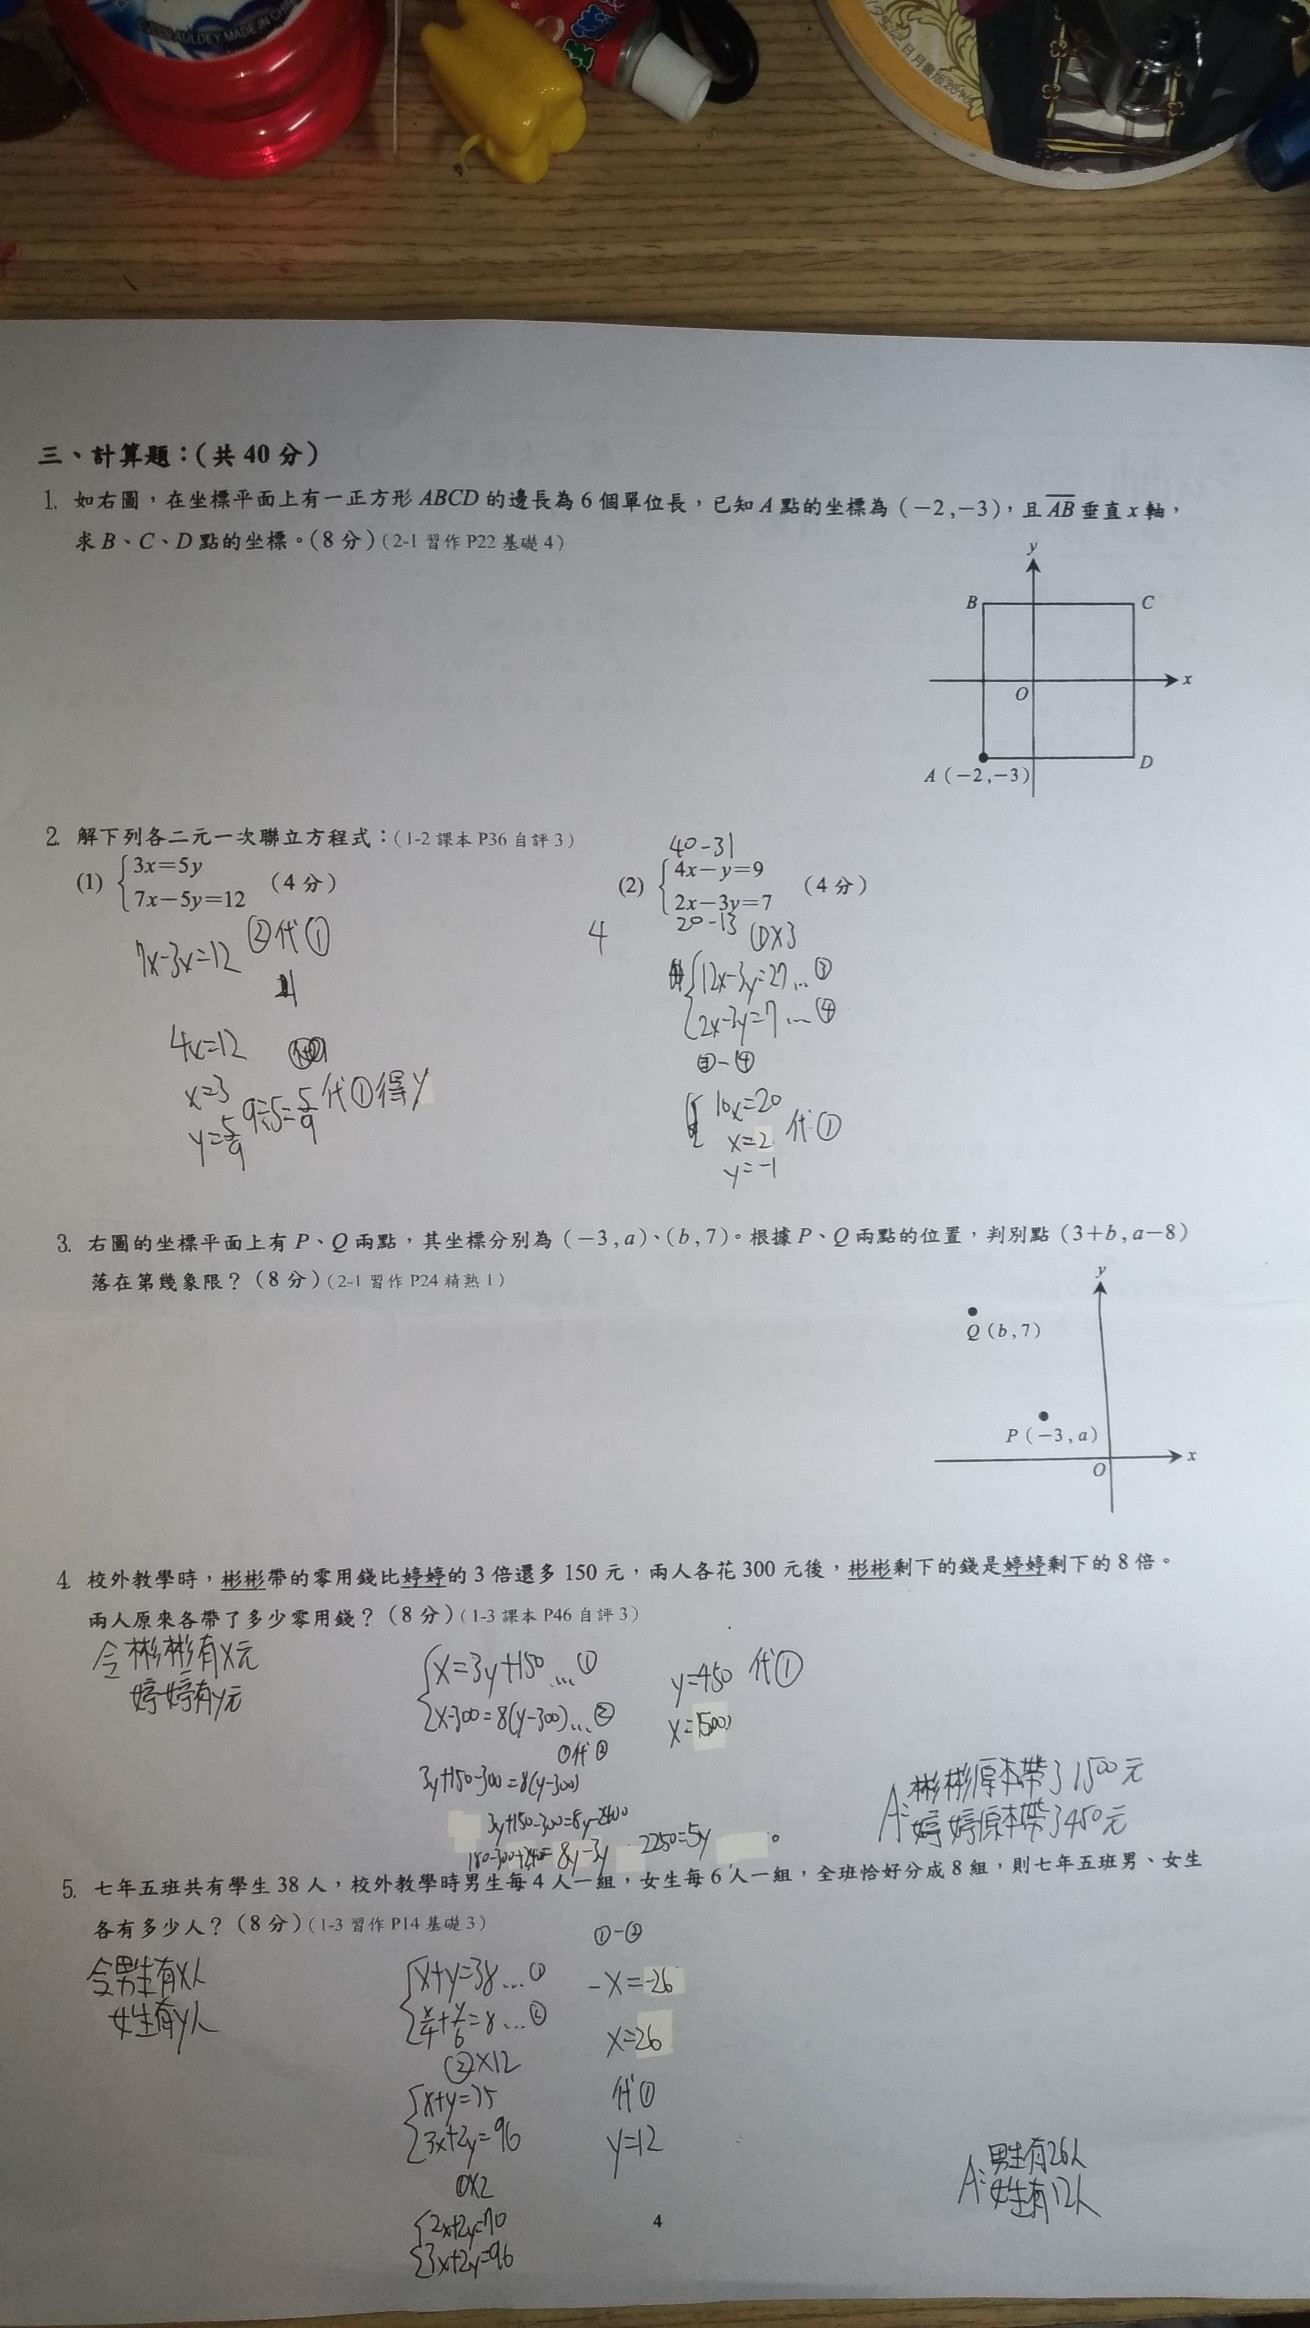 AULDEY MADE IN CHIN
三、計算題：(共 40 分)
1. 如右圖，在坐標平面上有一正方形 ABCD 的邊長為 6 個單位長，已知 A 點的坐標為 (－2,－3)，且 AB 垂直 x 軸，
求 B、C、D 點的坐標。(8 分)(2-1 習作 P22 基礎 4)
y
B C
O x
A (－2,－3) D
2. 解下列各二元一次聯立方程式：(1-2 課本 P36 自評 3)
(1) 3x＝5y
7x－5y＝12 (4 分)
7x-3x=12 ②代①
4x=12
x=3
9÷5=5/9 代①得y
y=5/9
40-31
(2) 4x－y＝9
2x－3y＝7 (4 分)
20-13
4 ①×3
12x-3y=27...③
2x-3y=7...④
③-④
10x=20
x=2 代①
y=-1
3. 右圖的坐標平面上有 P、Q 兩點，其坐標分別為 (－3,a)、(b,7)。根據 P、Q 兩點的位置，判別點 (3＋b,a－8)
落在第幾象限？(8 分)(2-1 習作 P24 精熟 1)
y
Q (b,7)
P (－3,a)
O x
4. 校外教學時，彬彬帶的零用錢比婷婷的 3 倍還多 150 元，兩人各花 300 元後，彬彬剩下的錢是婷婷剩下的 8 倍。
兩人原來各帶了多少零用錢？(8 分)(1-3 課本 P46 自評 3)
令彬彬有x元
婷婷有y元
x=3y+150...①
x-300=8(y-300)...②
①代②
3y+150-300=8(y-300)
3y+150-300=8y-2400
150-300+2400=8y-3y 2250=5y
y=450 代①
x=1500
A:彬彬原本帶了1500元
婷婷原本帶了450元
5. 七年五班共有學生 38 人，校外教學時男生每 4 人一組，女生每 6 人一組，全班恰好分成 8 組，則七年五班男、女生
各有多少人？(8 分)(1-3 習作 P14 基礎 3)
令男生有x人
女生有y人
x+y=38...①
x/4+y/6=8...②
②×12
x+y=35
3x+2y=96
①×2
2x+2y=70
3x+2y=96
①-②
-x=-26
x=26
代①
y=12
A:男生有26人
女生有12人
4